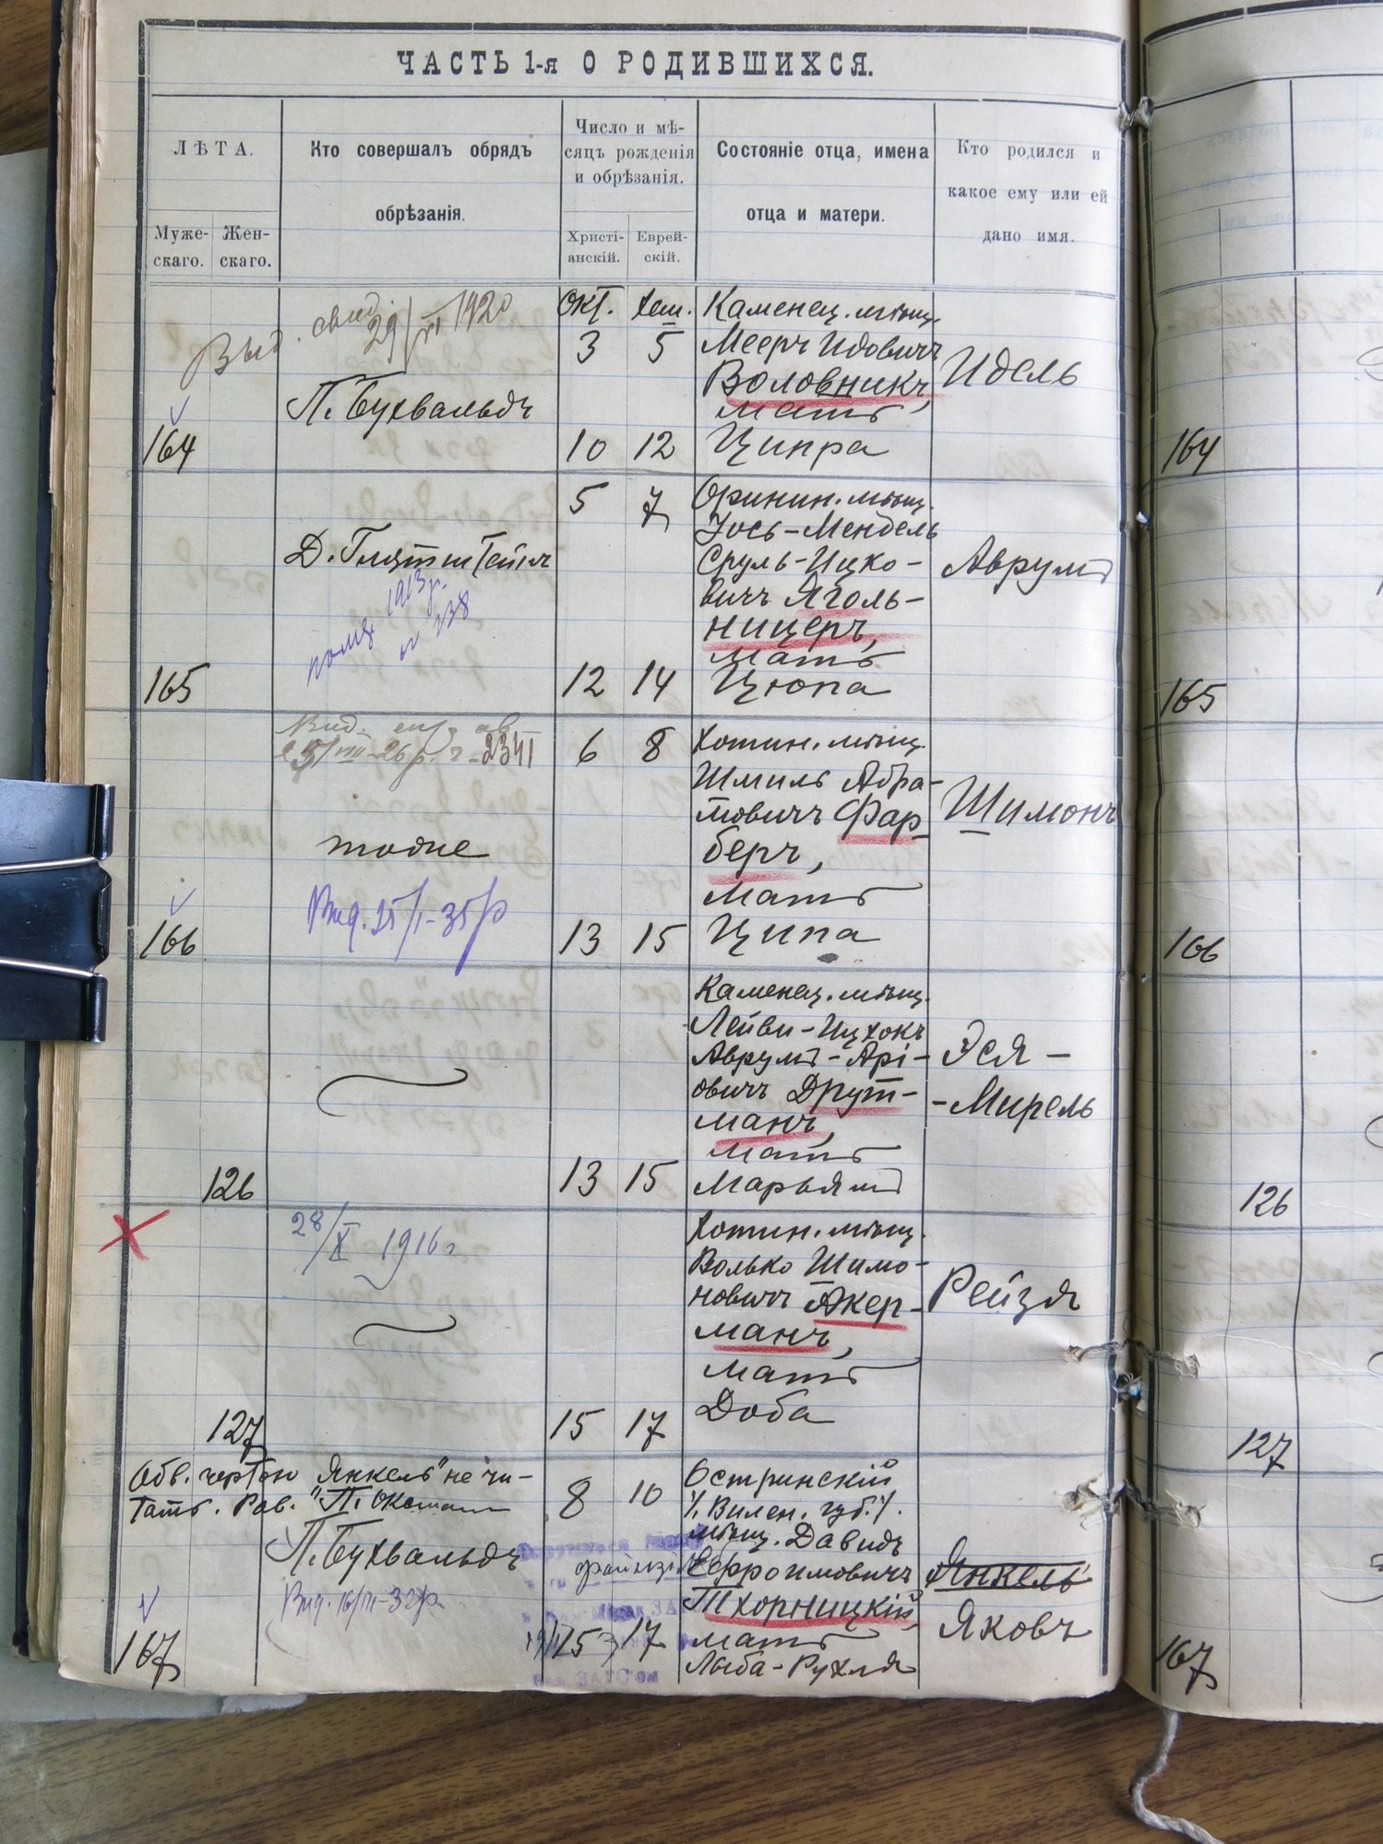 ЧАСТЬ 1-я О РОДИВШИХСЯ.
ЛѢТА.
Муже-
скаго.
Жен-
скаго.
Кто совершалъ обрядъ
обрѣзанія.
Число и мѣ-
сяцъ рожденія
и обрѣзанія.
Христі-
анскій.
Еврей-
скій.
Состояніе отца, имена
отца и матери.
Кто родился и
какое ему или ей
дано имя.
Выд. свид. 29/VI 1920
П. Бухвальдъ
164
Окт. Хеш.
3 5
10 12
Каменец. мѣщ.
Мееръ Идовичъ
Воловникъ,
мать
Ципра
Идель
164
Д. Глатштейнъ
1913 г.
№ 238
165
5 7
12 14
Оринин. мѣщ.
Іось-Мендель
Сруль-Ицко-
вичъ Яголь-
ницеръ,
мать
Цюпа
Аврумъ
165
25/VIII-26р. ч. 2341
тотже
Вид. 25/I-35р
166
6 8
13 15
Хотин. мѣщ.
Шмиль Абра-
мовичъ Фар-
беръ,
мать
Ципа
Шимонъ
166
126
13 15
Каменец. мѣщ.
Лейви-Ицхокъ
Аврумъ-Арі-
овичъ Друт-
манъ,
мать
Марьямъ
Эся-
-Мирель
126
28/X 1916 г
127
15 17
Хотин. мѣщ.
Волько Шимо-
новичъ Акер-
манъ,
мать
Доба
Рейзя
127
Обв. чертою „Янкель" не чи-
тать. Рав. П. Оксман
П. Бухвальдъ
167
8 10
15 17
Остринскій
/Вилен. губ./
мѣщ. Давидъ
Ефроимовичъ
Тхорницкій,
мать
Лыба-Рухля
Янкель
Яковъ
167